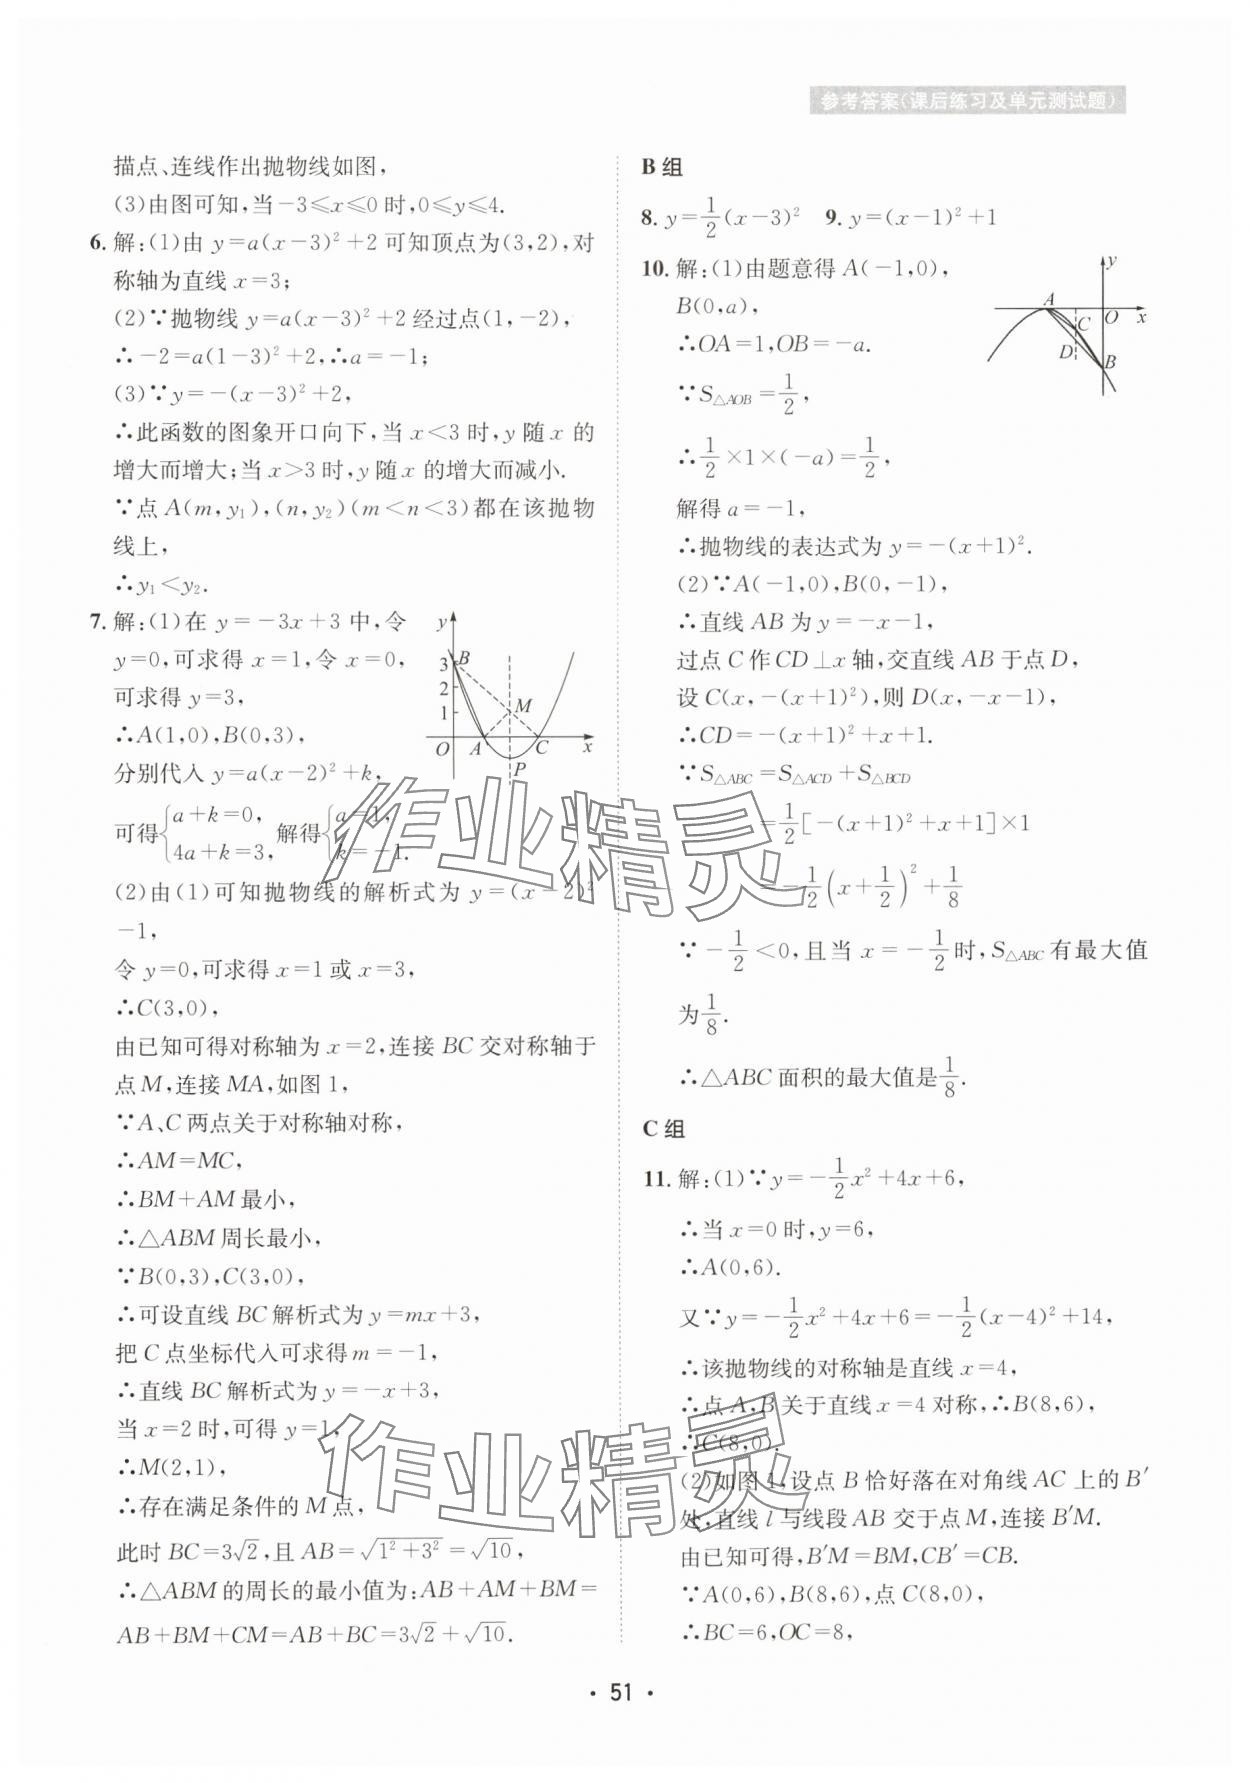 参考答案(课后练习及单元测试题)
描点、连线作出抛物线如图,
(3)由图可知,当-3≤x≤0时,0≤y≤4.
6. 解:(1)由 y=a(x-3)²+2 可知顶点为(3,2),对
称轴为直线 x=3;
(2)∵抛物线 y=a(x-3)²+2经过点(1,-2),
∴-2=a(1-3)²+2,∴a=-1;
(3)∵y=-(x-3)²+2,
∴此函数的图象开口向下,当 x<3 时,y 随 x 的
增大而增大;当 x>3 时,y 随 x 的增大而减小.
∵点 A(m,y₁),(n,y₂)(m<n<3)都在该抛物
线上,
∴y₁<y₂.
7. 解:(1)在 y=-3x+3 中,令
y=0,可求得 x=1,令 x=0,
可求得 y=3,
∴A(1,0),B(0,3),
分别代入 y=a(x-2)²+k,
可得{a+k=0, 4a+k=3, 解得{a=1, k=-1.
y
3 B
2
1 M
O A C x
P
(2)由(1)可知抛物线的解析式为 y=(x-2)²
-1,
令 y=0,可求得 x=1或 x=3,
∴C(3,0),
由已知可得对称轴为 x=2,连接 BC 交对称轴于
点 M,连接 MA,如图 1,
∵A、C 两点关于对称轴对称,
∴AM=MC,
∴BM+AM 最小,
∴△ABM 周长最小,
∵B(0,3),C(3,0),
∴可设直线 BC 解析式为 y=mx+3,
把 C 点坐标代入可求得 m=-1,
∴直线 BC 解析式为 y=-x+3,
当 x=2 时,可得 y=1,
∴M(2,1),
∴存在满足条件的 M 点,
此时 BC=3√2,且 AB=√(1²+3²)=√10,
∴△ABM 的周长的最小值为:AB+AM+BM=
AB+BM+CM=AB+BC=3√2+√10.
B 组
8. y=1/2(x-3)² 9. y=(x-1)²+1
10. 解:(1)由题意得 A(-1,0),
B(0,a),
∴OA=1,OB=-a.
∵S△AOB=1/2,
∴1/2×1×(-a)=1/2,
解得 a=-1,
∴抛物线的表达式为 y=-(x+1)².
y
A O x
C
D
B
(2)∵A(-1,0),B(0,-1),
∴直线 AB 为 y=-x-1,
过点 C 作 CD⊥x 轴,交直线 AB 于点 D,
设 C(x,-(x+1)²),则 D(x,-x-1),
∴CD=-(x+1)²+x+1.
∵S△ABC=S△ACD+S△BCD
=1/2[-(x+1)²+x+1]×1
=-1/2(x+1/2)²+1/8
∵-1/2<0,且当 x=-1/2时,S△ABC有最大值
为1/8.
∴△ABC 面积的最大值是1/8.
C 组
11. 解:(1)∵y=-1/2x²+4x+6,
∴当 x=0 时,y=6,
∴A(0,6).
又∵y=-1/2x²+4x+6=-1/2(x-4)²+14,
∴该抛物线的对称轴是直线 x=4,
∴点 A,B 关于直线 x=4 对称,∴B(8,6),
∴C(8,0).
(2)如图 1,设点 B 恰好落在对角线 AC 上的 B′
处,直线 l 与线段 AB 交于点 M,连接 B′M.
由已知可得,B′M=BM,CB′=CB.
∵A(0,6),B(8,6),点 C(8,0),
∴BC=6,OC=8,
作业精灵
作业精灵
· 51 ·